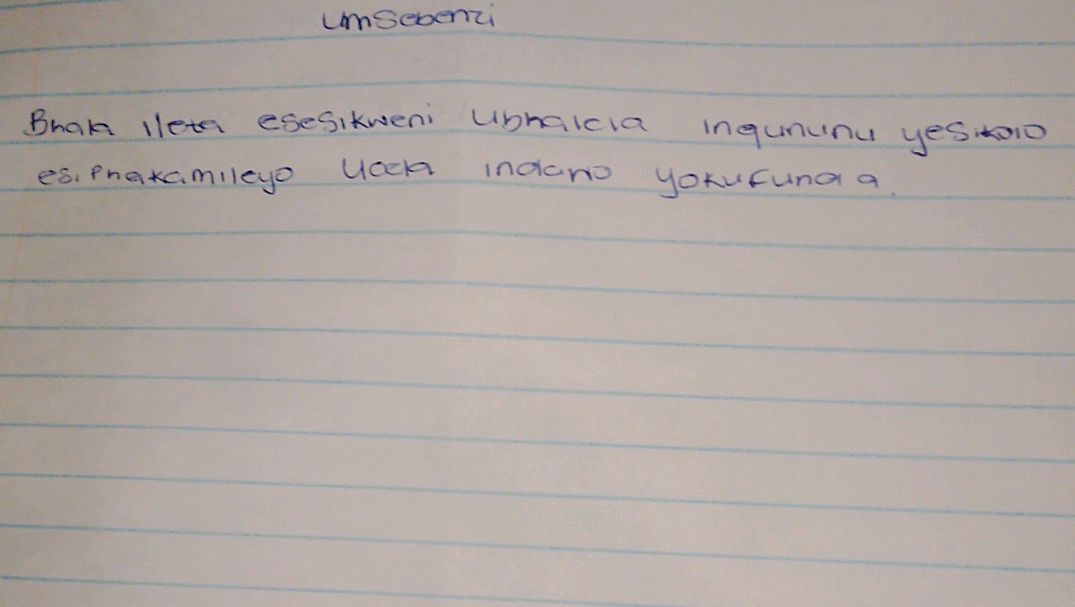 Umsebenzi
Bhala ileta esesikweni ubhalela inqununu yesikolo
esiphakamileyo ucela indawo yokufunda.